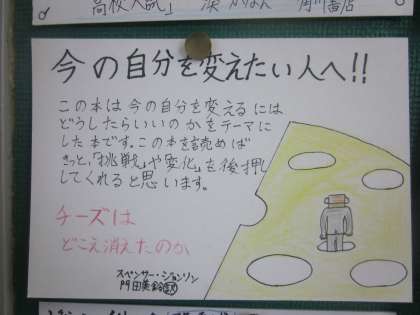 高校入試」 湊 かなえ 角川書店
今の自分を変えたい人へ!!
この本は今の自分を変えるには
どうしたらいいのかをテーマに
した本です。この本を読めば
きっと、「挑戦」や「変化」を後押
してくれると思います。
チーズは
どこえ消えたのか
スペンサー・ジョンソン
門田美鈴 訳